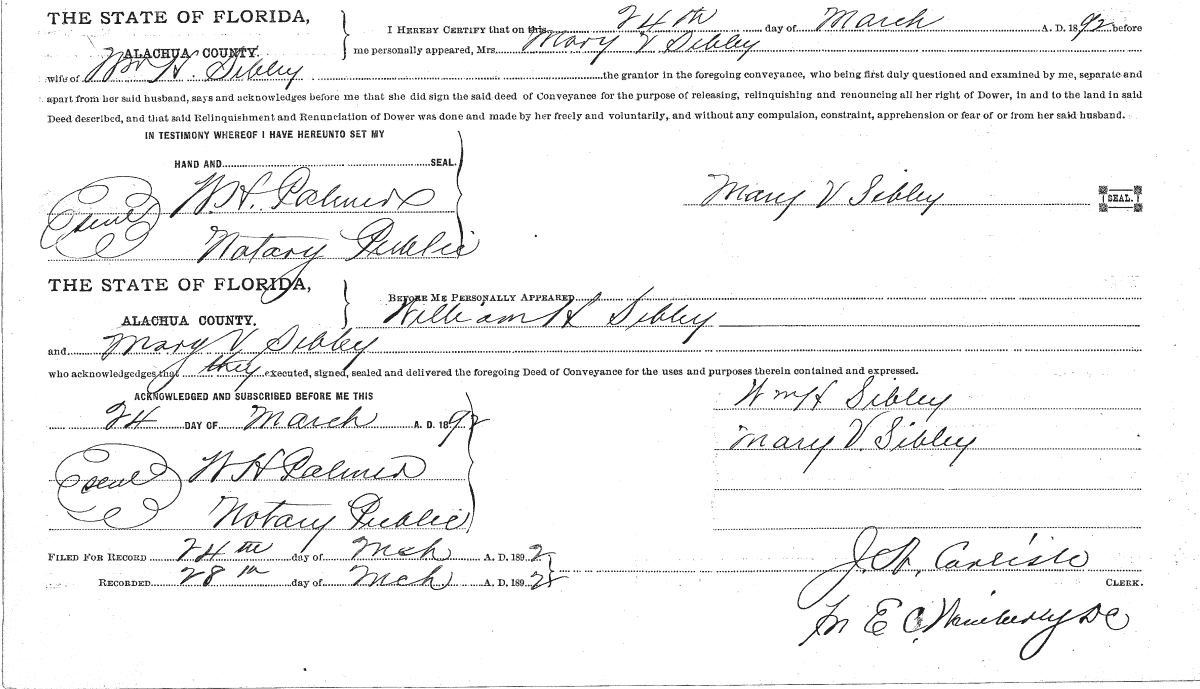 THE STATE OF FLORIDA,
ALACHUA COUNTY.
I HEREBY CERTIFY that on this 24th day of March A. D. 1892 before
me personally appeared, Mrs. Mary V Sibley
wife of Wm H. Sibley the grantor in the foregoing conveyance, who being first duly questioned and examined by me, separate and
apart from her said husband, says and acknowledges before me that she did sign the said deed of Conveyance for the purpose of releasing, relinquishing and renouncing all her right of Dower, in and to the land in said
Deed described, and that said Relinquishment and Renunciation of Dower was done and made by her freely and voluntarily, and without any compulsion, constraint, apprehension or fear of or from her said husband.
IN TESTIMONY WHEREOF I HAVE HEREUNTO SET MY
HAND AND SEAL.
seal W. H. Palmer
Notary Public
Mary V Sibley SEAL.
THE STATE OF FLORIDA,
ALACHUA COUNTY.
BEFORE ME PERSONALLY APPEARED
William H Sibley
and Mary V. Sibley
who acknowledgedges that they executed, signed, sealed and delivered the foregoing Deed of Conveyance for the uses and purposes therein contained and expressed.
ACKNOWLEDGED AND SUBSCRIBED BEFORE ME THIS
24 DAY OF March A. D. 1892
seal W H Palmer
Notary Public
Wm H Sibley
Mary V. Sibley
FILED FOR RECORD 24th day of Mch A. D. 1892
RECORDED 28th day of Mch A. D. 1892
J. A. Carlisle
CLERK.
E C Wimberly DC